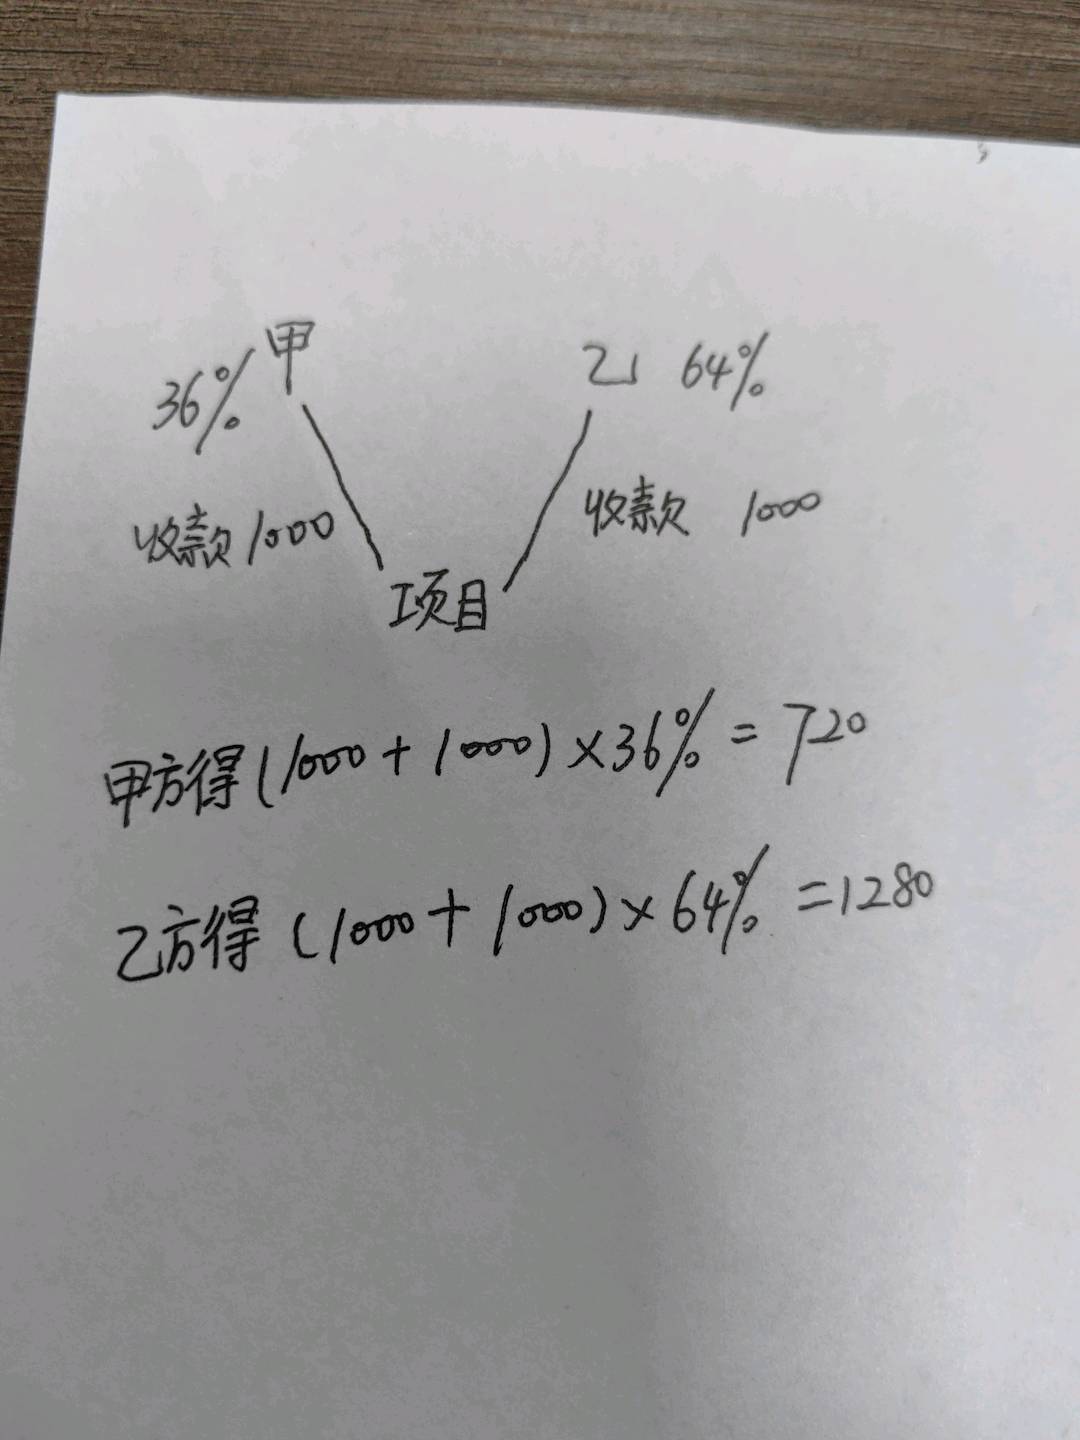 36% 甲 乙 64%
收款1000 收款 1000
项目
甲方得(1000+1000)×36%=720
乙方得(1000+1000)×64%=1280